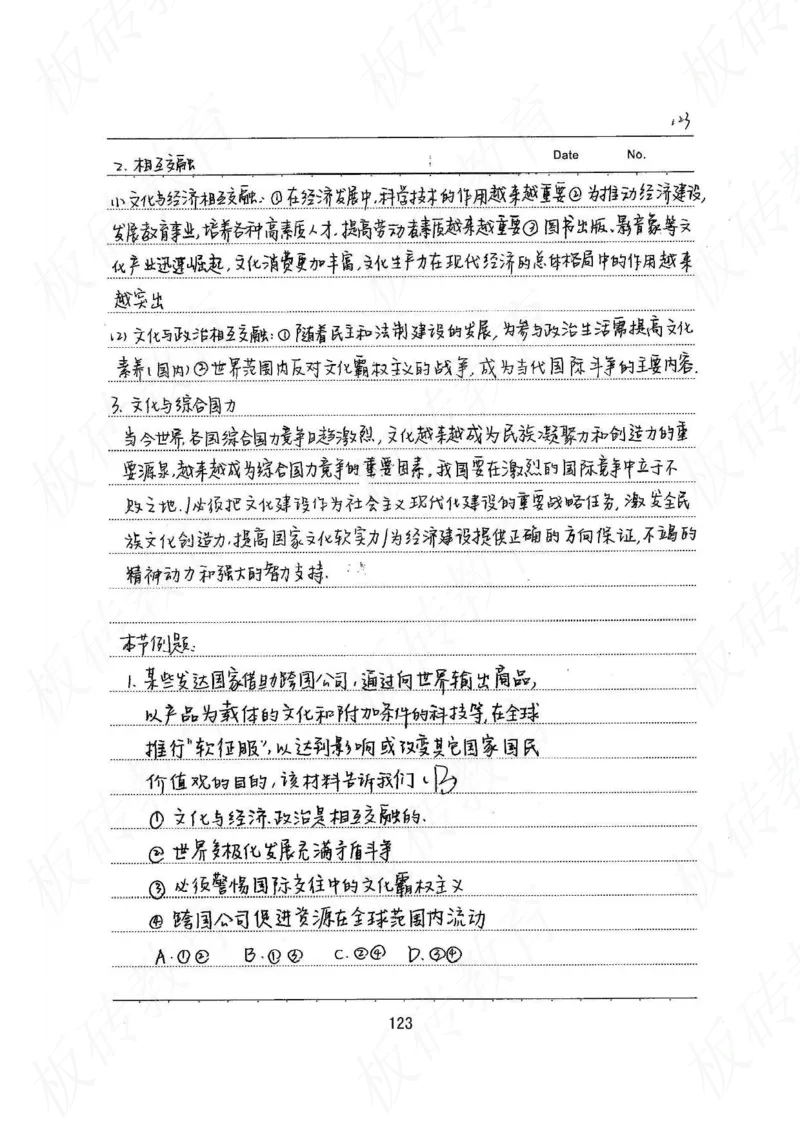 123
Date No.
2. 相互交融
(1) 文化与经济相互交融：①在经济发展中，科学技术的作用越来越重要②为推动经济建设，
发展教育事业，培养各种高素质人才，提高劳动者素质越来越重要③图书出版、影音象等文
化产业迅速崛起，文化消费更加丰富，文化生产力在现代经济的总体格局中的作用越来
越突出
(2) 文化与政治相互交融：①随着民主和法制建设的发展，为参与政治生活需提高文化
素养(国内)②世界范围内反对文化霸权主义的战争，成为当代国际斗争的主要内容.
3. 文化与综合国力
当今世界，各国综合国力竞争日趋激烈，文化越来越成为民族凝聚力和创造力的重
要源泉，越来越成为综合国力竞争的重要因素，我国要在激烈的国际竞争中立于不
败之地，/必须把文化建设作为社会主义现代化建设的重要战略任务，激发全民
族文化创造力，提高国家文化软实力/为经济建设提供正确的方向保证，不竭的
精神动力和强大的智力支持.
本节例题：
1. 某些发达国家借助跨国公司，通过向世界输出商品，
以产品为载体的文化和附加条件的科技等，在全球
推行"软征服"，以达到影响或改变其它国家国民
价值观的目的，该材料告诉我们（B）
① 文化与经济、政治是相互交融的.
② 世界多极化发展充满矛盾斗争
③ 必须警惕国际交往中的文化霸权主义
④ 跨国公司促进资源在全球范围内流动
A.①② B.①③ C.②④ D.③④
123
板砖教育